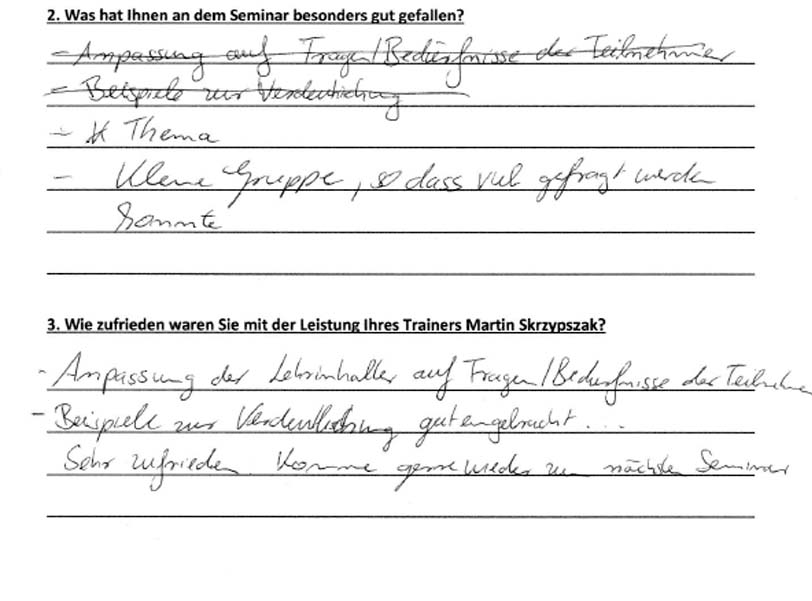 2. Was hat Ihnen an dem Seminar besonders gut gefallen?
- Anpassung auf Fragen/Bedürfnisse der Teilnehmer
- Beispiele zur Verdeutlichung
- Thema
- Kleine Gruppe, so dass viel gefragt werden
konnte
3. Wie zufrieden waren Sie mit der Leistung Ihres Trainers Martin Skrzypszak?
- Anpassung der Lehrinhalte auf Fragen/Bedürfnisse der Teilnehmer
- Beispiele zur Verdeutlichung gut eingebracht...
Sehr zufrieden. Komme gerne wieder zum nächsten Seminar